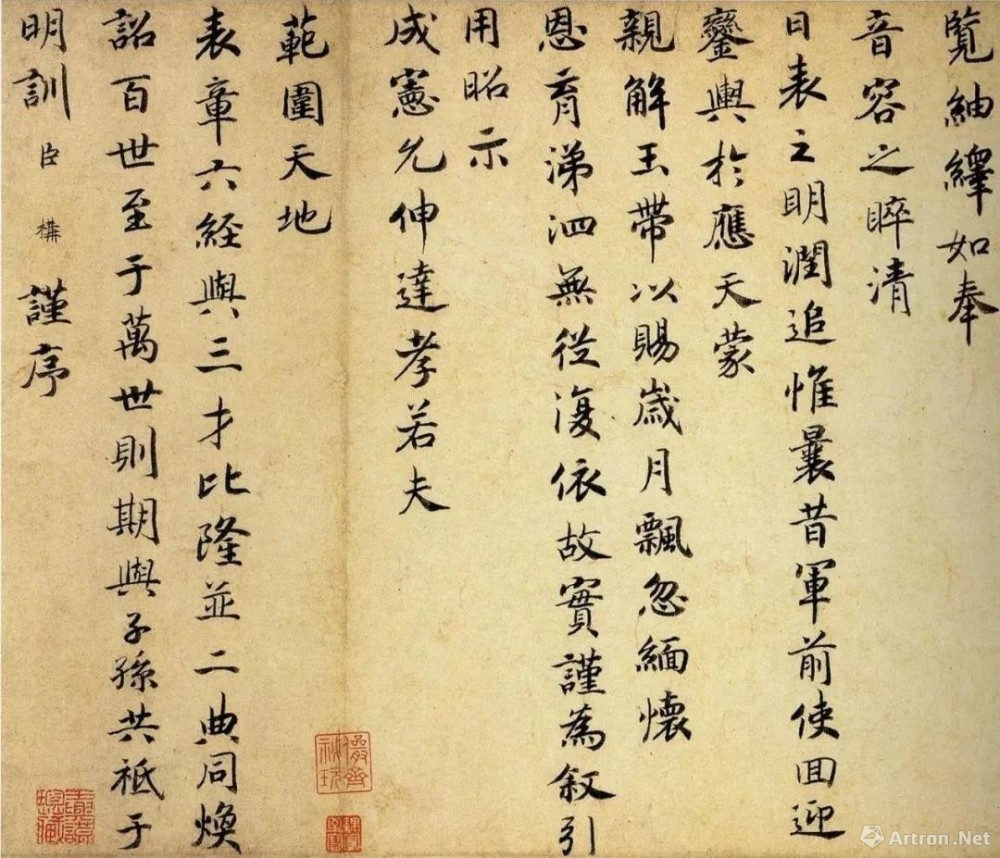 覽紬繹如奉
音容之睟清
日表之明潤追惟曩昔軍前使回迎
鑾輿於應天蒙
親解玉帶以賜歲月飄忽緬懷
恩育涕泗無從復依故實謹為叙引
用昭示
成憲允伸達孝若夫
範圍天地
表章六経與三才比隆並二典同煥
詔百世至于萬世則期與子孫共祗于
明訓臣構謹序
Artron.Net